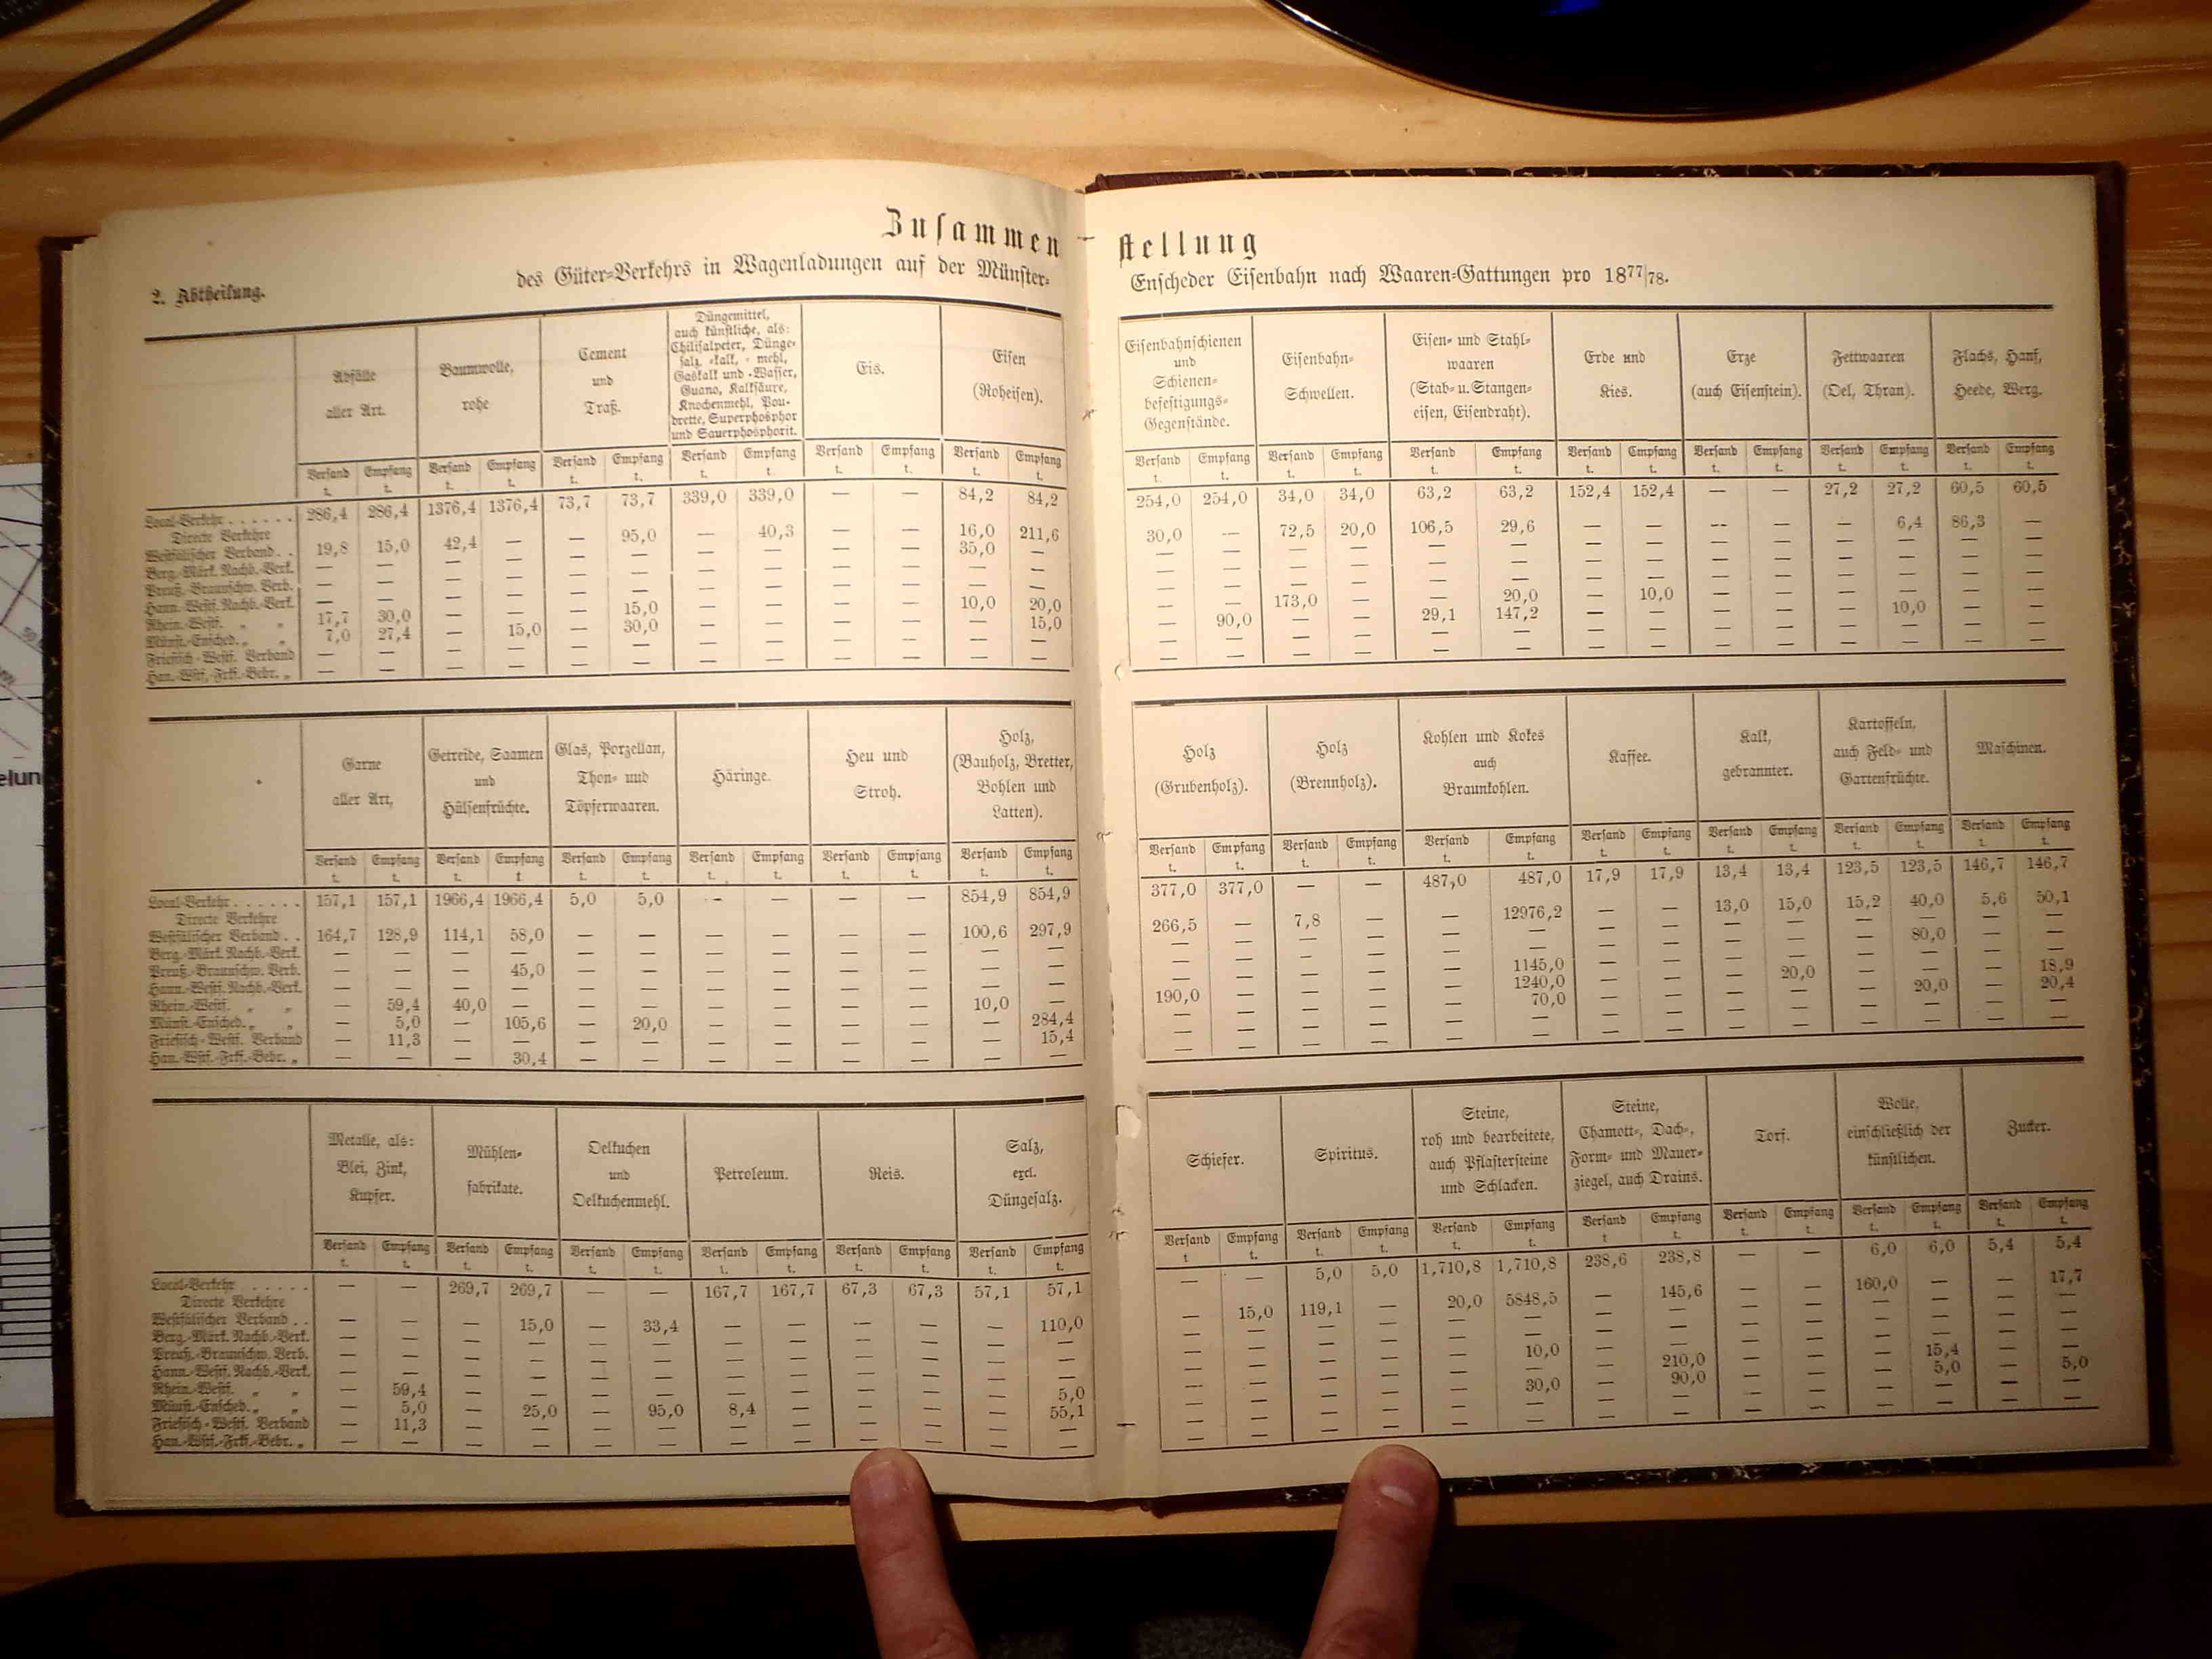 Zusammen-
stellung
2. Abtheilung.
des Güter-Verkehrs in Wagenladungen auf der Münster-
Enscheder Eisenbahn nach Waaren-Gattungen pro 1877/78.
Abfälle aller Art. | Baumwolle, rohe | Cement und Traß. | Düngemittel, auch künstliche, als: Chilisalpeter, Dünge-salz, -kalk, -mehl, Gaskalk und -Wasser, Guano, Kalksäure, Knochenmehl, Pou-drette, Superphosphor und Sauerphosphorit. | Eis. | Eisen (Roheisen).
Versand t. | Empfang t. | Versand t. | Empfang t. | Versand t. | Empfang t. | Versand t. | Empfang t. | Versand t. | Empfang t. | Versand t. | Empfang t.
Local-Verkehr . . . . . . 286,4 | 286,4 | 1376,4 | 1376,4 | 73,7 | 73,7 | 339,0 | 339,0 | — | — | 84,2 | 84,2
Directe Verkehre
Westfälischer Verband . . 19,8 | 15,0 | 42,4 | — | — | 95,0 | — | 40,3 | — | — | 16,0 | 211,6
Berg.-Märk. Nachb.-Verk. — | — | — | — | — | — | — | — | — | — | 35,0 | —
Preuß.-Braunschw. Verb. — | — | — | — | — | — | — | — | — | — | — | —
Hann.-Westf. Nachb.-Verk. — | — | — | — | — | — | — | — | — | — | — | —
Rhein.-Westf. „ „ 17,7 | 30,0 | — | — | — | 15,0 | — | — | — | — | 10,0 | 20,0
Münst.-Ensched. „ „ 7,0 | 27,4 | — | 15,0 | — | 30,0 | — | — | — | — | — | 15,0
Friesisch-Westf. Verband — | — | — | — | — | — | — | — | — | — | — | —
Han.-Wstf.-Frkf.-Bebr. „ — | — | — | — | — | — | — | — | — | — | — | —
Eisenbahnschienen und Schienen-befestigungs-Gegenstände. | Eisenbahn-Schwellen. | Eisen- und Stahl-waaren (Stab- u. Stangen-eisen, Eisendraht). | Erde und Kies. | Erze (auch Eisenstein). | Fettwaaren (Oel, Thran). | Flachs, Hanf, Heede, Werg.
Versand t. | Empfang t. | Versand t. | Empfang t. | Versand t. | Empfang t. | Versand t. | Empfang t. | Versand t. | Empfang t. | Versand t. | Empfang t. | Versand t. | Empfang t.
254,0 | 254,0 | 34,0 | 34,0 | 63,2 | 63,2 | 152,4 | 152,4 | — | — | 27,2 | 27,2 | 60,5 | 60,5
30,0 | — | 72,5 | 20,0 | 106,5 | 29,6 | — | — | — | — | — | 6,4 | 86,3 | —
— | — | — | — | — | — | — | — | — | — | — | — | — | —
— | — | — | — | — | — | — | — | — | — | — | — | — | —
— | — | — | — | — | — | — | — | — | — | — | — | — | —
— | — | 173,0 | — | — | 20,0 | — | 10,0 | — | — | — | — | — | —
— | 90,0 | — | — | 29,1 | 147,2 | — | — | — | — | — | 10,0 | — | —
— | — | — | — | — | — | — | — | — | — | — | — | — | —
— | — | — | — | — | — | — | — | — | — | — | — | — | —
Garne aller Art. | Getreide, Saamen und Hülsenfrüchte. | Glas, Porzellan, Thon- und Töpferwaaren. | Häringe. | Heu und Stroh. | Holz, (Bauholz, Bretter, Bohlen und Latten).
Versand t. | Empfang t. | Versand t. | Empfang t | Versand t. | Empfang t. | Versand t. | Empfang t. | Versand t. | Empfang t. | Versand t. | Empfang t.
Local-Verkehr . . . . . . 157,1 | 157,1 | 1966,4 | 1966,4 | 5,0 | 5,0 | — | — | — | — | 854,9 | 854,9
Directe Verkehre
Westfälischer Verband . . 164,7 | 128,9 | 114,1 | 58,0 | — | — | — | — | — | — | 100,6 | 297,9
Berg.-Märk. Nachb.-Verk. — | — | — | — | — | — | — | — | — | — | — | —
Preuß.-Braunschw. Verb. — | — | — | 45,0 | — | — | — | — | — | — | — | —
Hann.-Westf. Nachb.-Verk. — | — | — | — | — | — | — | — | — | — | — | —
Rhein.-Westf. „ „ — | 59,4 | 40,0 | — | — | — | — | — | — | — | 10,0 | —
Münst.-Ensched. „ „ — | 5,0 | — | 105,6 | — | 20,0 | — | — | — | — | — | 284,4
Friesisch-Westf. Verband — | 11,3 | — | — | — | — | — | — | — | — | — | 15,4
Han.-Wstf.-Frkf.-Bebr. „ — | — | — | 30,4 | — | — | — | — | — | — | — | —
Holz (Grubenholz). | Holz (Brennholz). | Kohlen und Kokes auch Braunkohlen. | Kaffee. | Kalk, gebrannter. | Kartoffeln, auch Feld- und Gartenfrüchte. | Maschinen.
Versand t. | Empfang t. | Versand t. | Empfang t. | Versand t. | Empfang t. | Versand t. | Empfang t. | Versand t. | Empfang t. | Versand t. | Empfang t. | Versand t. | Empfang t.
377,0 | 377,0 | — | — | 487,0 | 487,0 | 17,9 | 17,9 | 13,4 | 13,4 | 123,5 | 123,5 | 146,7 | 146,7
266,5 | — | 7,8 | — | — | 12976,2 | — | — | 13,0 | 15,0 | 15,2 | 40,0 | 5,6 | 50,1
— | — | — | — | — | — | — | — | — | — | — | — | — | —
— | — | — | — | — | — | — | — | — | — | — | 80,0 | — | —
— | — | — | — | — | 1145,0 | — | — | — | — | — | — | — | —
190,0 | — | — | — | — | 1240,0 | — | — | — | 20,0 | — | — | — | 18,9
— | — | — | — | — | 70,0 | — | — | — | — | — | 20,0 | — | 20,4
— | — | — | — | — | — | — | — | — | — | — | — | — | —
— | — | — | — | — | — | — | — | — | — | — | — | — | —
Metalle, als: Blei, Zink, Kupfer. | Mühlen-fabrikate. | Oelkuchen und Oelkuchenmehl. | Petroleum. | Reis. | Salz, excl. Düngesalz.
Versand t. | Empfang t. | Versand t. | Empfang t. | Versand t. | Empfang t. | Versand t. | Empfang t. | Versand t. | Empfang t. | Versand t. | Empfang t.
Local-Verkehr . . . . . — | — | 269,7 | 269,7 | — | — | 167,7 | 167,7 | 67,3 | 67,3 | 57,1 | 57,1
Directe Verkehre
Westfälischer Verband . . — | — | — | 15,0 | — | 33,4 | — | — | — | — | — | 110,0
Berg.-Märk. Nachb.-Verk. — | — | — | — | — | — | — | — | — | — | — | —
Preuß.-Braunschw. Verb. — | — | — | — | — | — | — | — | — | — | — | —
Hann.-Westf. Nachb.-Verk. — | — | — | — | — | — | — | — | — | — | — | —
Rhein.-Westf. „ „ — | 59,4 | — | — | — | — | — | — | — | — | — | 5,0
Münst.-Ensched. „ „ — | 5,0 | — | 25,0 | — | 95,0 | 8,4 | — | — | — | — | 55,1
Friesisch-Westf. Verband — | 11,3 | — | — | — | — | — | — | — | — | — | —
Han.-Wstf.-Frkf.-Bebr. „ — | — | — | — | — | — | — | — | — | — | — | —
Schiefer. | Spiritus. | Steine, roh und bearbeitete, auch Pflastersteine und Schlacken. | Steine, Chamott-, Dach-, Form- und Mauer-ziegel, auch Drains. | Torf. | Wolle, einschließlich der künstlichen. | Zucker.
Versand t | Empfang t. | Versand t. | Empfang t. | Versand t. | Empfang t. | Versand t. | Empfang t. | Versand t. | Empfang t. | Versand t. | Empfang t. | Versand t. | Empfang t.
— | — | 5,0 | 5,0 | 1,710,8 | 1,710,8 | 238,6 | 238,8 | — | — | 6,0 | 6,0 | 5,4 | 5,4
— | 15,0 | 119,1 | — | 20,0 | 5848,5 | — | 145,6 | — | — | 160,0 | — | — | 17,7
— | — | — | — | — | — | — | — | — | — | — | — | — | —
— | — | — | — | — | — | — | — | — | — | — | — | — | —
— | — | — | — | — | 10,0 | — | — | — | — | — | — | — | —
— | — | — | — | — | — | — | 210,0 | — | — | — | 15,4 | — | —
— | — | — | — | — | 30,0 | — | 90,0 | — | — | — | 5,0 | — | 5,0
— | — | — | — | — | — | — | — | — | — | — | — | — | —
— | — | — | — | — | — | — | — | — | — | — | — | — | —